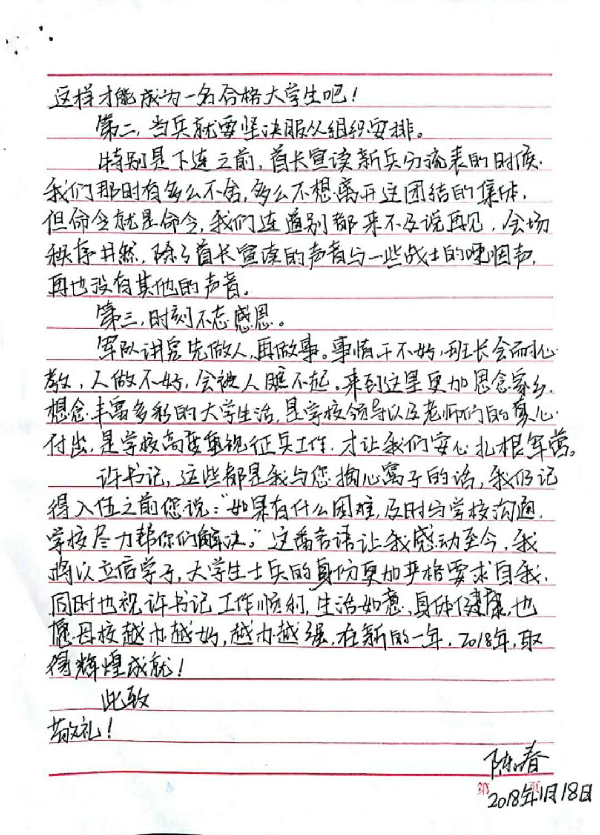 这样才能成为一名合格大学生吧！
第二，当兵就要坚决服从组织安排。
特别是下连之前，首长宣读新兵分流表的时候，
我们那时有多么不舍，多么不想离开这团结的集体，
但命令就是命令，我们连道别都来不及说再见，会场
秩序井然，除了首长宣读的声音与一些战士的哽咽声，
再也没有其他的声音。
第三，时刻不忘感恩。
军队讲究先做人，再做事。事情干不好，班长会耐心
教，人做不好，会被人瞧不起。来到这里更加思念家乡，
想念丰富多彩的大学生活，是学校领导以及老师们的爱心
付出，是学校高度重视征兵工作，才让我们安心扎根军营。
许书记，这些都是我与您掏心窝子的话，我仍记
得入伍之前您说：“如果有什么困难，及时与学校沟通，
学校尽力帮你们解决。”这番言语让我感动至今，我
将以立信学子，大学生士兵的身份更加严格要求自我，
同时也祝许书记工作顺利，生活如意，身体健康，也
愿母校越办越好，越办越强，在新的一年，2018年，取
得辉煌成就！
此致
敬礼！
陈春
第 页
2018年1月18日